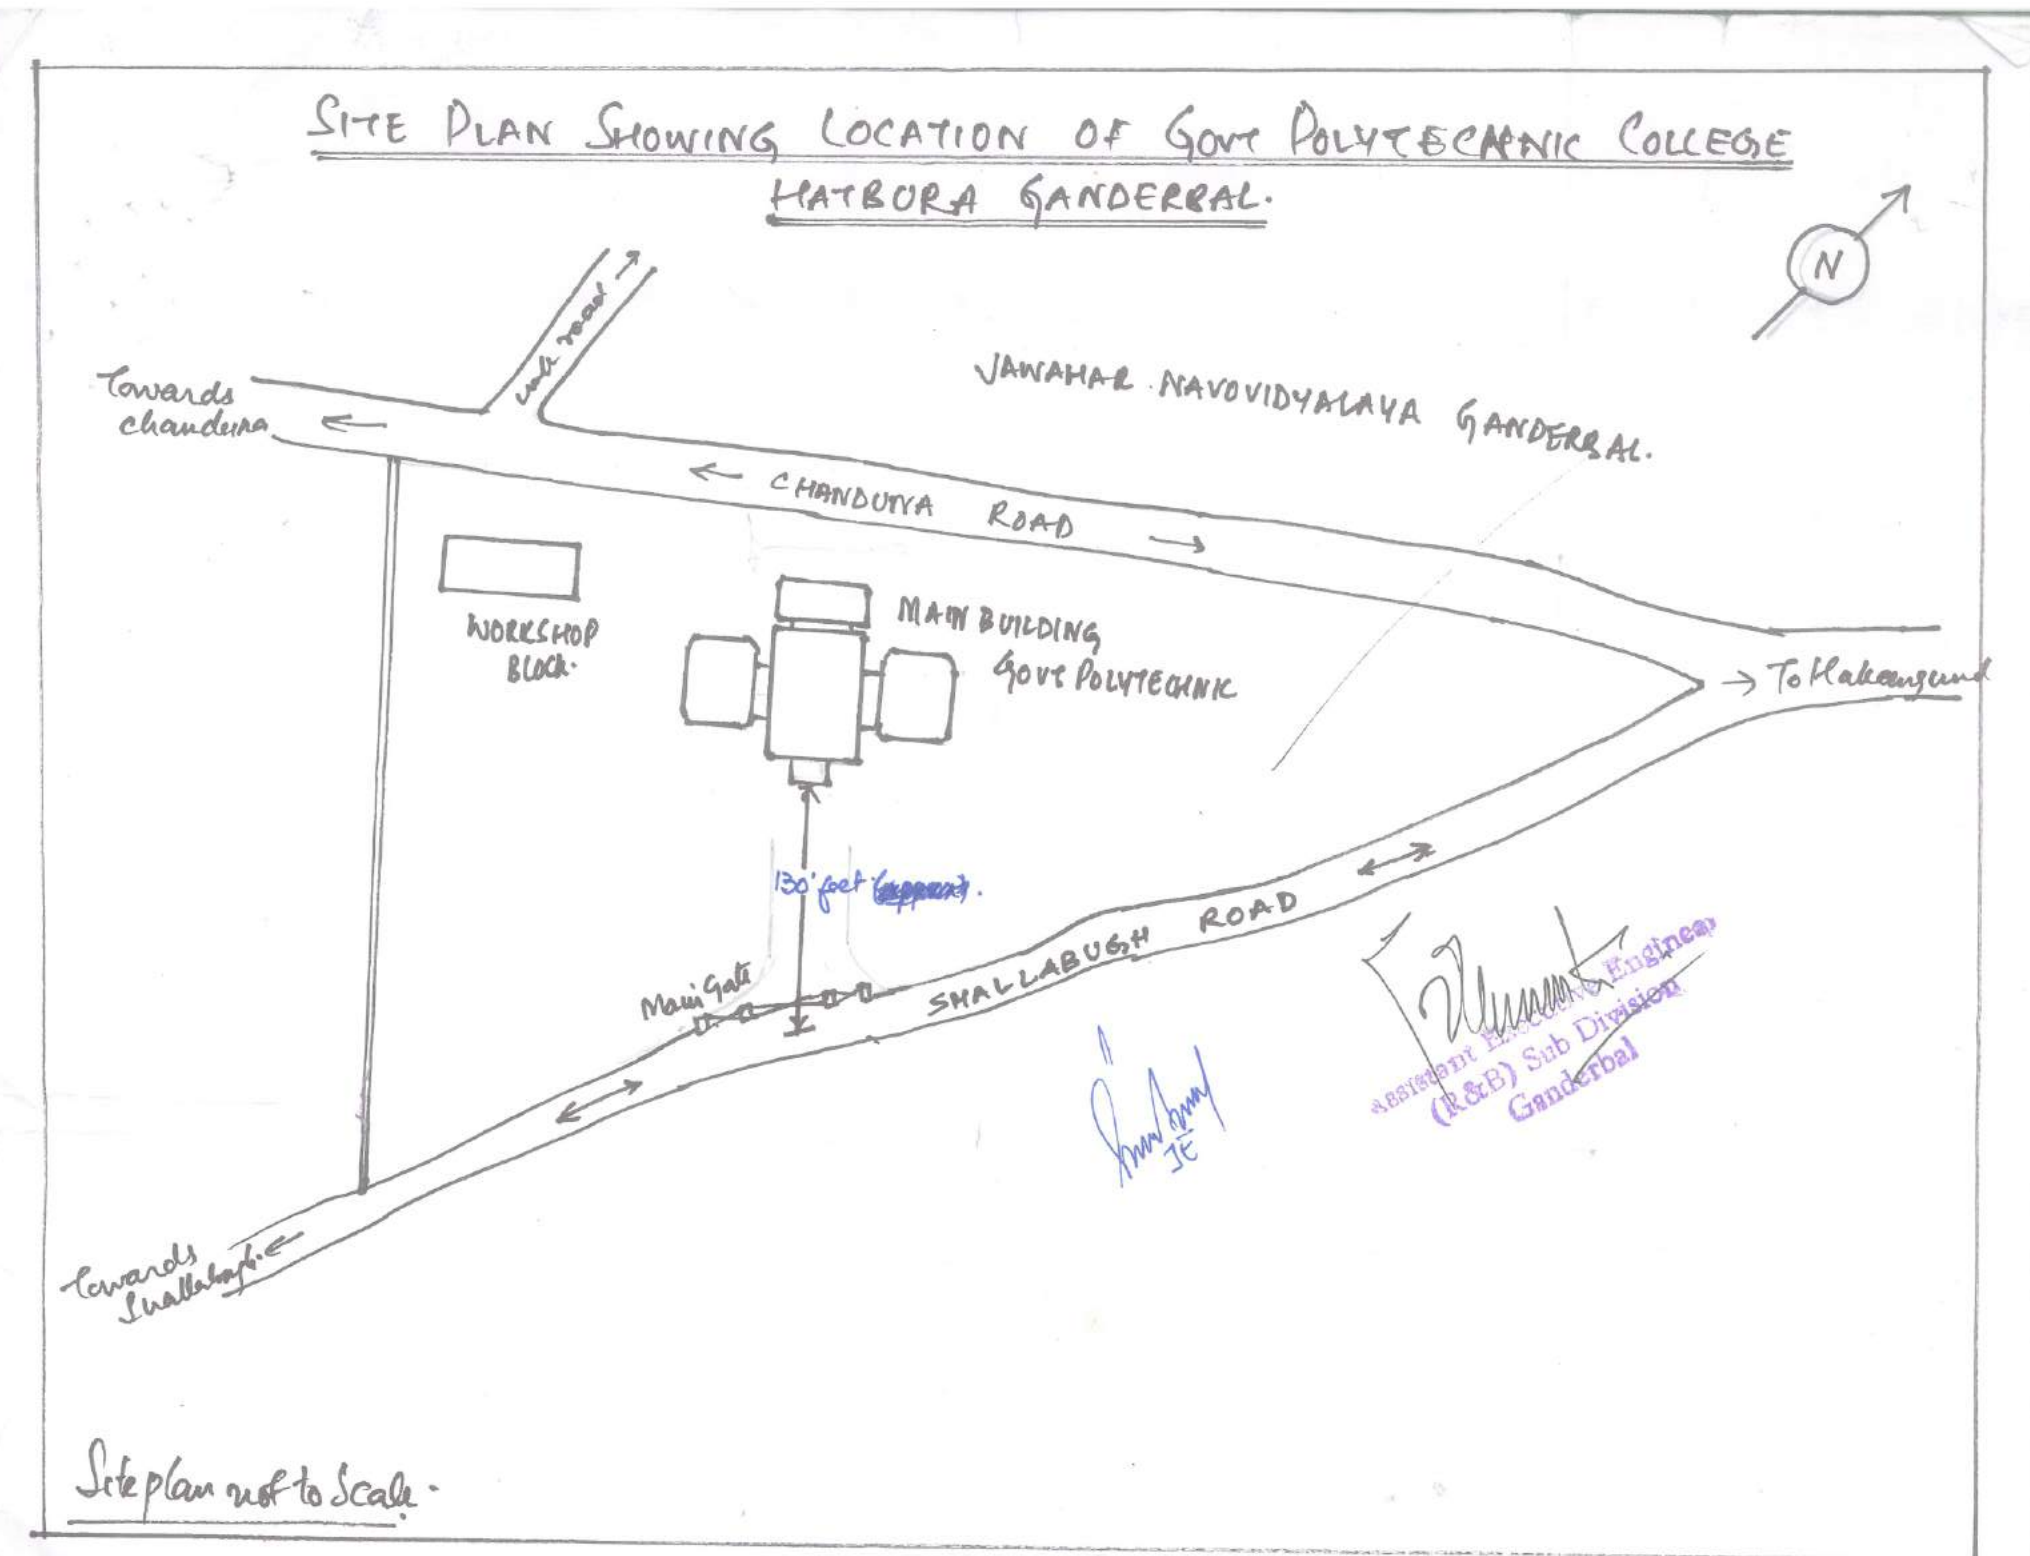 SITE PLAN SHOWING LOCATION OF GOVT POLYTECHNIC COLLEGE
HATBURA GANDERBAL.
N
road
JAWAHAR NAVOVIDYALAYA GANDERBAL.
Towards
chanduna
CHANDUNA ROAD
WORKSHOP
BLOCK.
MAIN BUILDING
GOVT POLYTECHNIC
To Hakeemgund
130' feet
Main Gate
SHALLABUGH ROAD
JE
Assistant Executive Engineer
(R&B) Sub Division
Ganderbal
Towards
Shallabugh.
Site plan not to Scale.